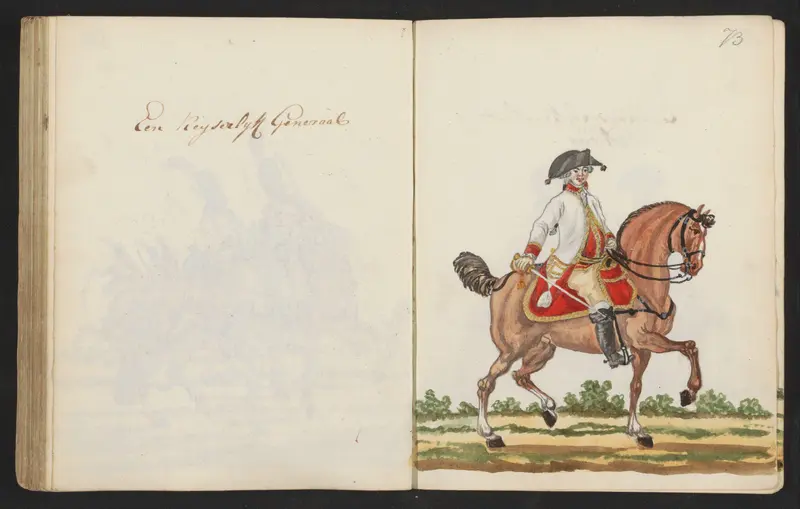 Een Keyserlyk Generaal
73